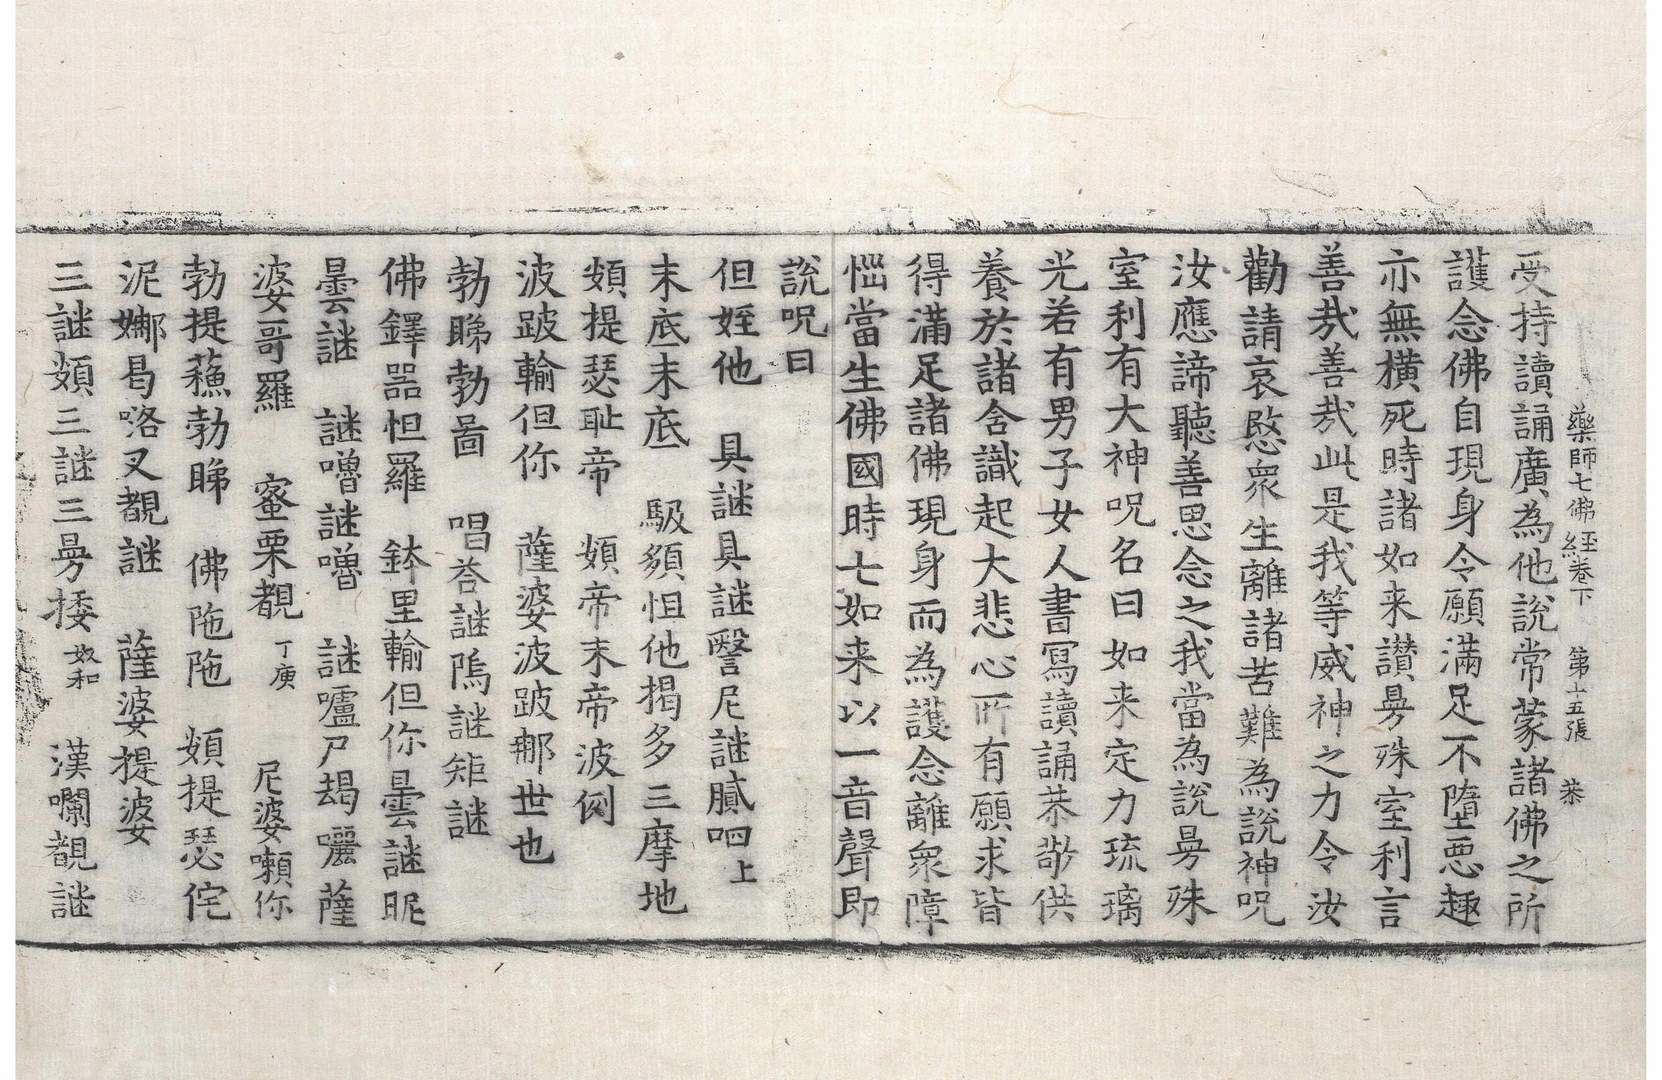 藥師七佛經卷下　第十五張　恭
受持讀誦廣為他說常蒙諸佛之所
護念佛自現身令願滿足不墮惡趣
亦無橫死時諸如来讃曼殊室利言
善哉善哉此是我等威神之力令汝
勸請哀愍衆生離諸苦難為說神呪
汝應諦聽善思念之我當為說曼殊
室利有大神呪名曰如来定力琉璃
光若有男子女人書寫讀誦恭敬供
養於諸含識起大悲心所有願求皆
得滿足諸佛現身而為護念離衆障
惱當生佛國時七如来以一音聲即
說呪曰
但姪他　具謎具謎醫尼謎膩呬上
末底末底　馺頞怛他揭多三摩地
頞提瑟耻帝　頞帝末帝波例
波跛輸但你　薩婆波跛那世也
勃睇勃啚　唱荅謎隖謎矩謎
佛鐸器怛羅　鉢里輸但你曇謎昵
曇謎　謎嚕謎嚕　謎嚧尸朅囇薩
婆哥羅　蜜栗覩丁庾　尼婆嚩你
勃提蘓勃睇　佛陁陁　頞提瑟侘
泥娜曷咯叉覩謎　薩婆提婆
三謎頞三謎三曼捼奴和　漢嚂覩謎